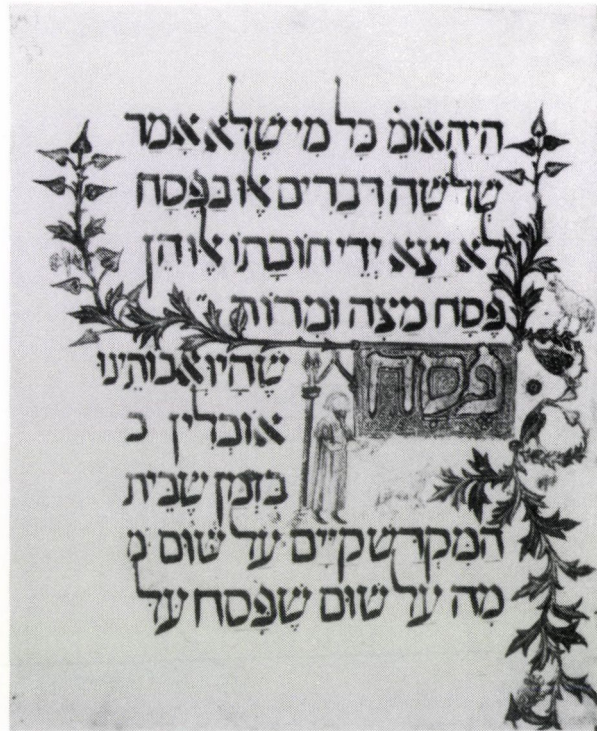 היה אומ׳ כָּל מי שֶׁלֹא אָמַר
שְׁלֹשָׁה דְבָרִים אֵוּ בַּפֶּסַח
לֹא יָצָא יְדֵי חוֹבָתוֹ אֵוּ הֵן
פֶּסַח מַצָּה וּמָרוֹר
פֶּסַח
שֶׁהָיוּ אֲבוֹתֵינוּ
אוֹכְלִין כ
בִּזְמַן שֶׁבֵּית
הַמִקְדָשׁ קַיָּים עַל שׁוּם מ
מַה עַל שׁוּם שֶׁפָּסַח עַל